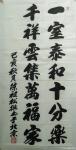 一室泰和十分樂
千祥雲集萬福家